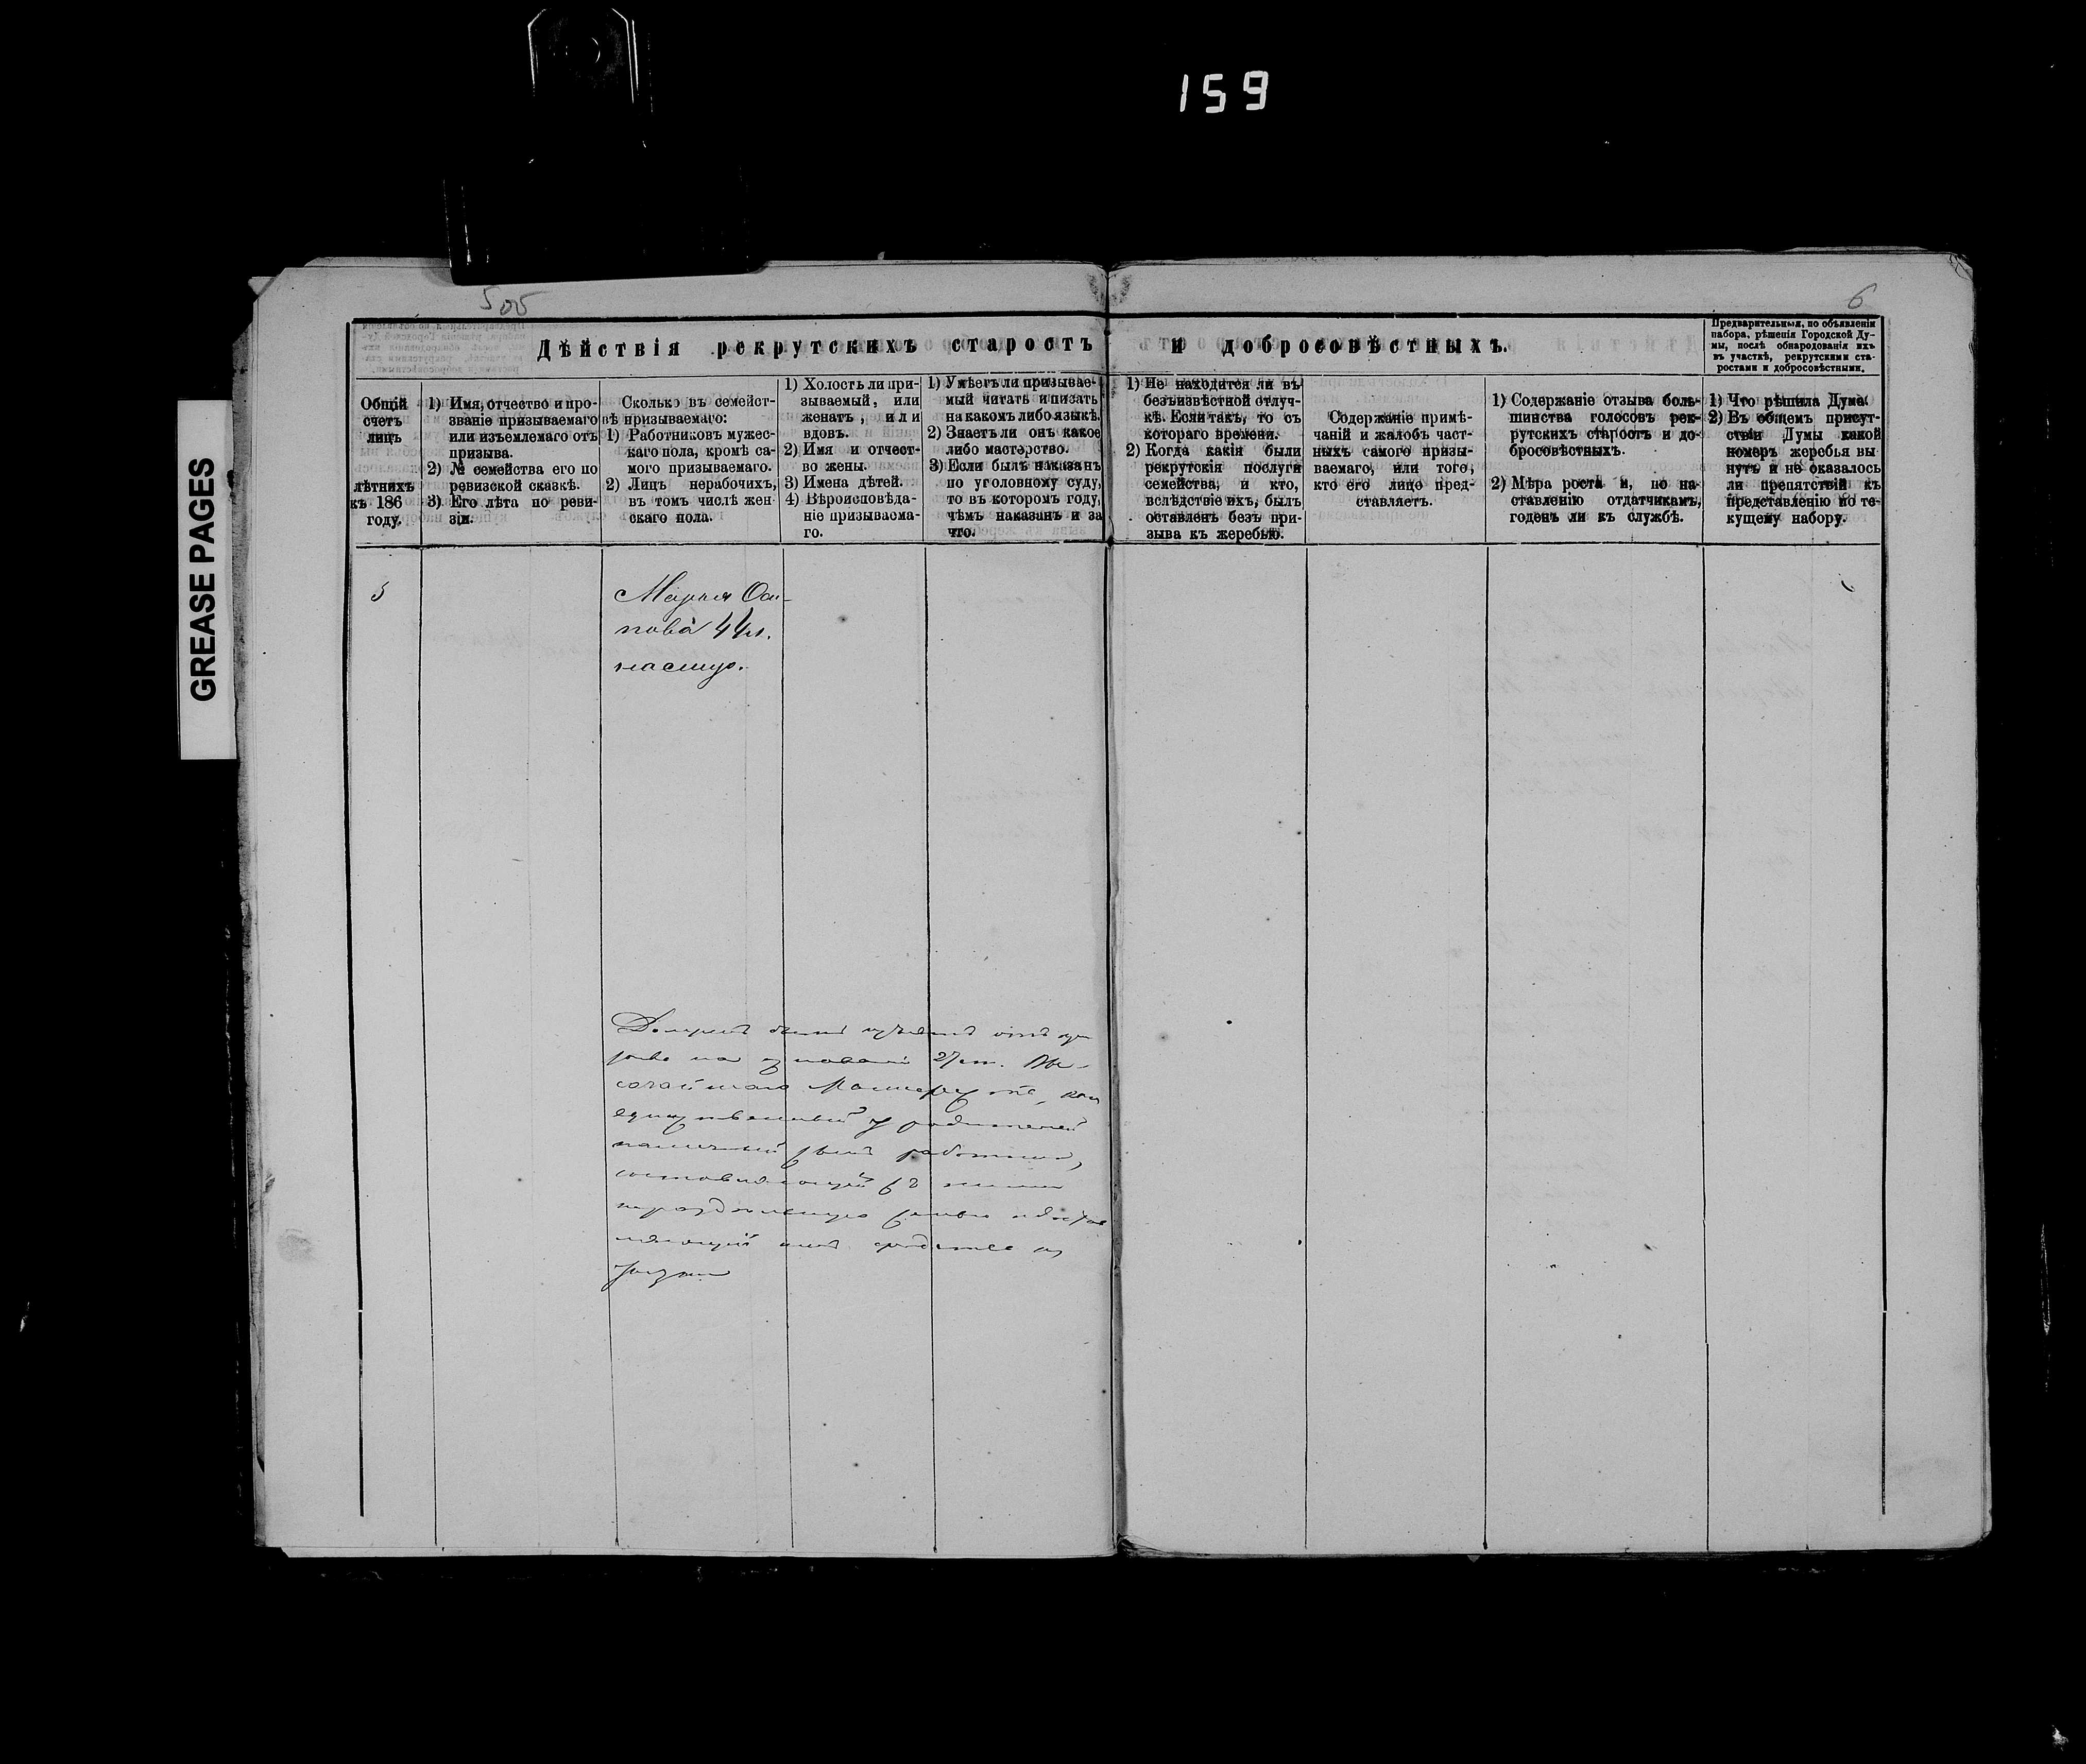 159
GREASE PAGES
505
6
Дѣйствія рекрутскихъ старостъ и добросовѣстныхъ.
Предварительныя, по объявленіи
набора, рѣшенія Городской Ду-
мы, послѣ обнародованія ихъ
въ участкѣ, рекрутскими ста-
ростами и добросовѣстными.
Общій
счетъ
лицъ
лѣтнихъ
къ 186
году.
1) Имя, отчество и про-
званіе призываемаго
или изъемлемаго отъ
призыва.
2) № семейства его по
ревизской сказкѣ.
3) Его лѣта по реви-
зіи.
Сколько въ семейст-
вѣ призываемаго:
1) Работниковъ мужес-
каго пола, кромѣ са-
мого призываемаго.
2) Лицъ нерабочихъ,
въ томъ числѣ жен
скаго пола.
1) Холостъ ли при-
зываемый, или
женатъ, или
вдовъ.
2) Имя и отчест-
во жены.
3) Имена дѣтей.
4) Вѣроисповѣда-
ніе призываема-
го.
1) Умѣетъ ли призывае-
мый читать и писать
на какомъ либо языкѣ.
2) Знаетъ ли онъ какое
либо мастерство.
3) Если былъ наказанъ
по уголовному суду,
то въ которомъ году,
чѣмъ наказанъ и за
что.
1) Не находится ли въ
безъизвѣстной отлуч-
кѣ. Если такъ, то съ
котораго времени.
2) Когда какія были
рекрутскія послуги
семейства, и кто,
вслѣдствіе ихъ, былъ
оставленъ безъ при-
зыва къ жеребью.
Содержаніе примѣ-
чаній и жалобъ част-
ныхъ самого призы-
ваемаго, или того,
кто его лице пред-
ставляетъ.
1) Содержаніе отзыва боль-
шинства голосовъ рек-
рутскихъ старостъ и до-
бросовѣстныхъ.
2) Мѣра роста и, по на-
ставленію отдатчикамъ,
годенъ ли къ службѣ.
1) Что рѣшила Дума.
2) Въ общемъ присут-
ствіи Думы какой
номеръ жеребья вы
нутъ и не оказалось
ли препятствій къ
представленію по те-
кущему набору.
Марья Оси-
пова 44 л.
Долженъ быть изъятъ отъ
на основаніи 27 ст.
единственный у родителей
наличный сынъ работникъ,
составляющій съ ними
нераздѣльную семью
средства къ